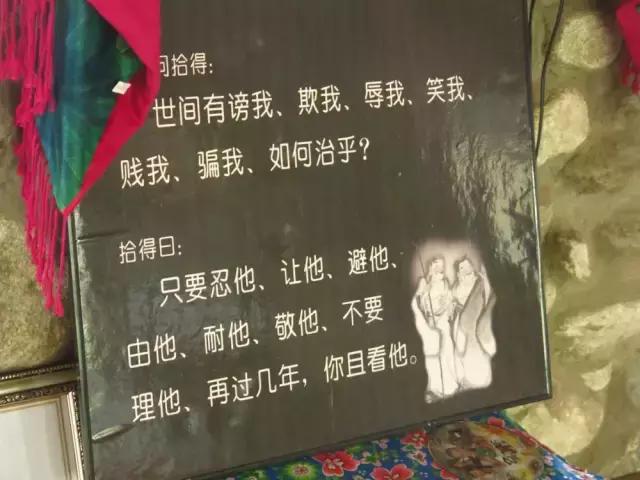 问拾得：
世间有谤我、欺我、辱我、笑我、
贱我、骗我、如何治乎？
拾得曰：
只要忍他、让他、避他、
由他、耐他、敬他、不要
理他、再过几年，你且看他。